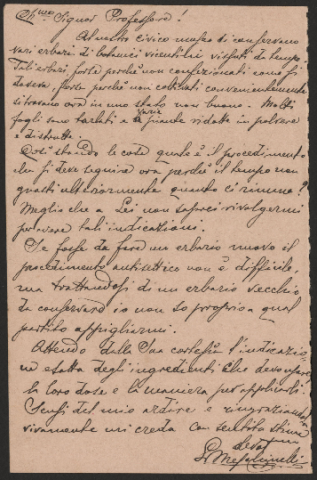 Ch.mo Signor Professore!
Al nostro civico museo si conservano
vari erbari di botanici vicentini vissuti da tempo.
Tali erbari, forse perchè non confezionati come si
doveva, forse perchè non collocati convenientemente
si trovano ora in uno stato non buono. Molti
fogli sono tarlati e varie piante ridotte in polvere
e distrutte.
Così stando le cose quale è il procedimento
che si deve seguire ora perchè il tempo non
guasti ulteriormente quanto ci rimane?
Meglio che a Lei non saprei rivolgermi
per avere tali indicazioni.
Se fosse da fare un erbario nuovo il
procedimento antisettico non è difficile,
ma trattandosi di un erbario vecchio
da conservarsi io non so proprio a qual
partito appigliarmi.
Attendo dalla Sua cortesia l'indicazio
ne esatta degli ingredienti che devo usare
la loro dose e la maniera per applicarli.
Scusi del mio ardire e ringraziando
vivamente mi creda con sentita stima
devot